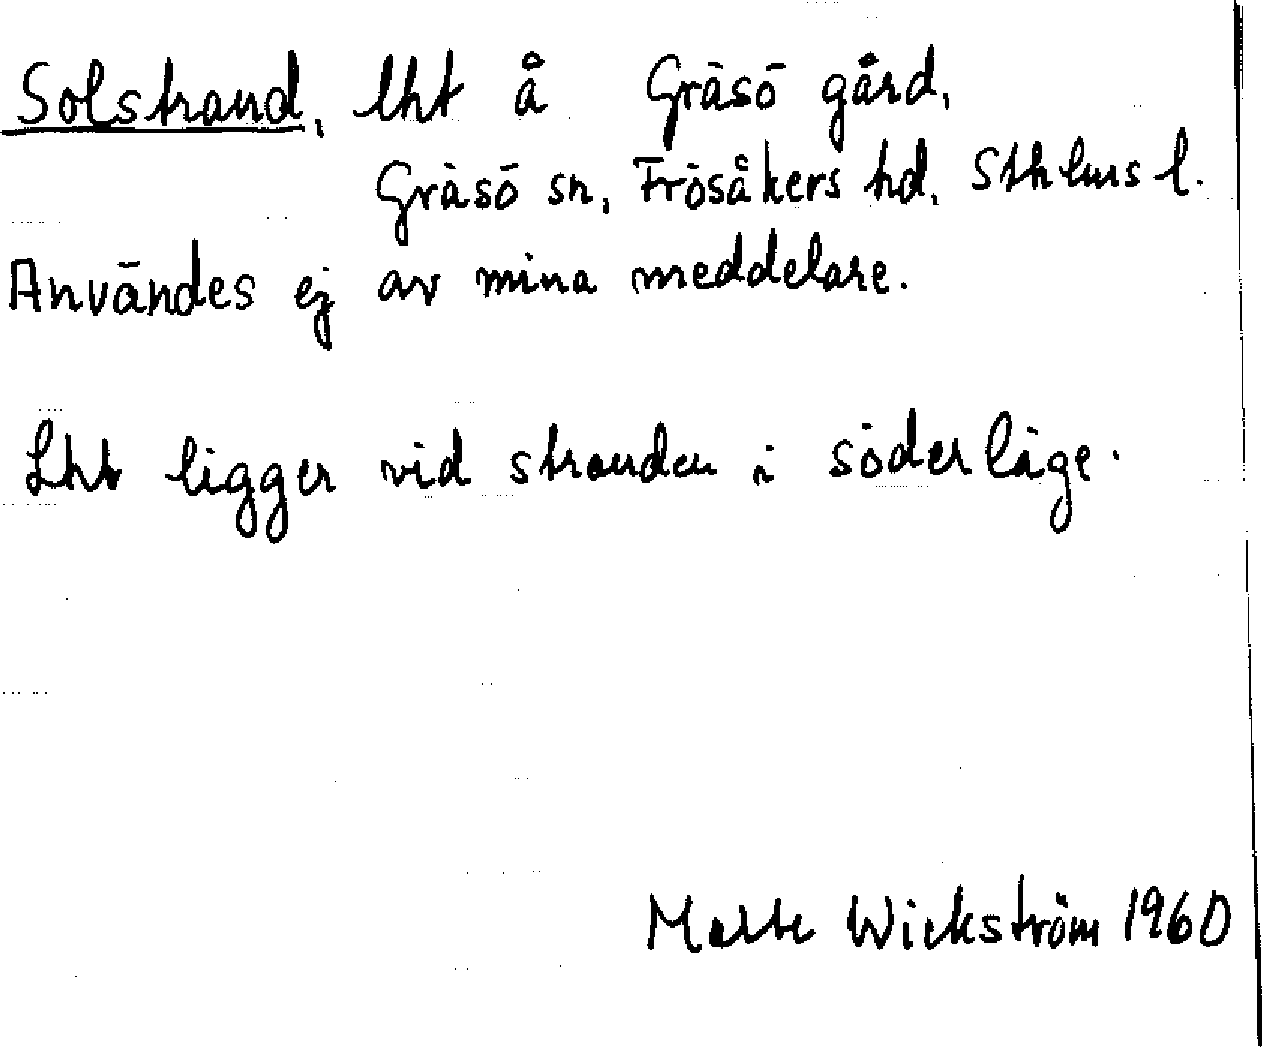 Solstrand, lht å Gräsö gård,
Gräsö sn, Frösåkers hd, Sthlms l.
Användes ej av mina meddelare.
Lht ligger vid stranden i söderläge.
Wickström 1960